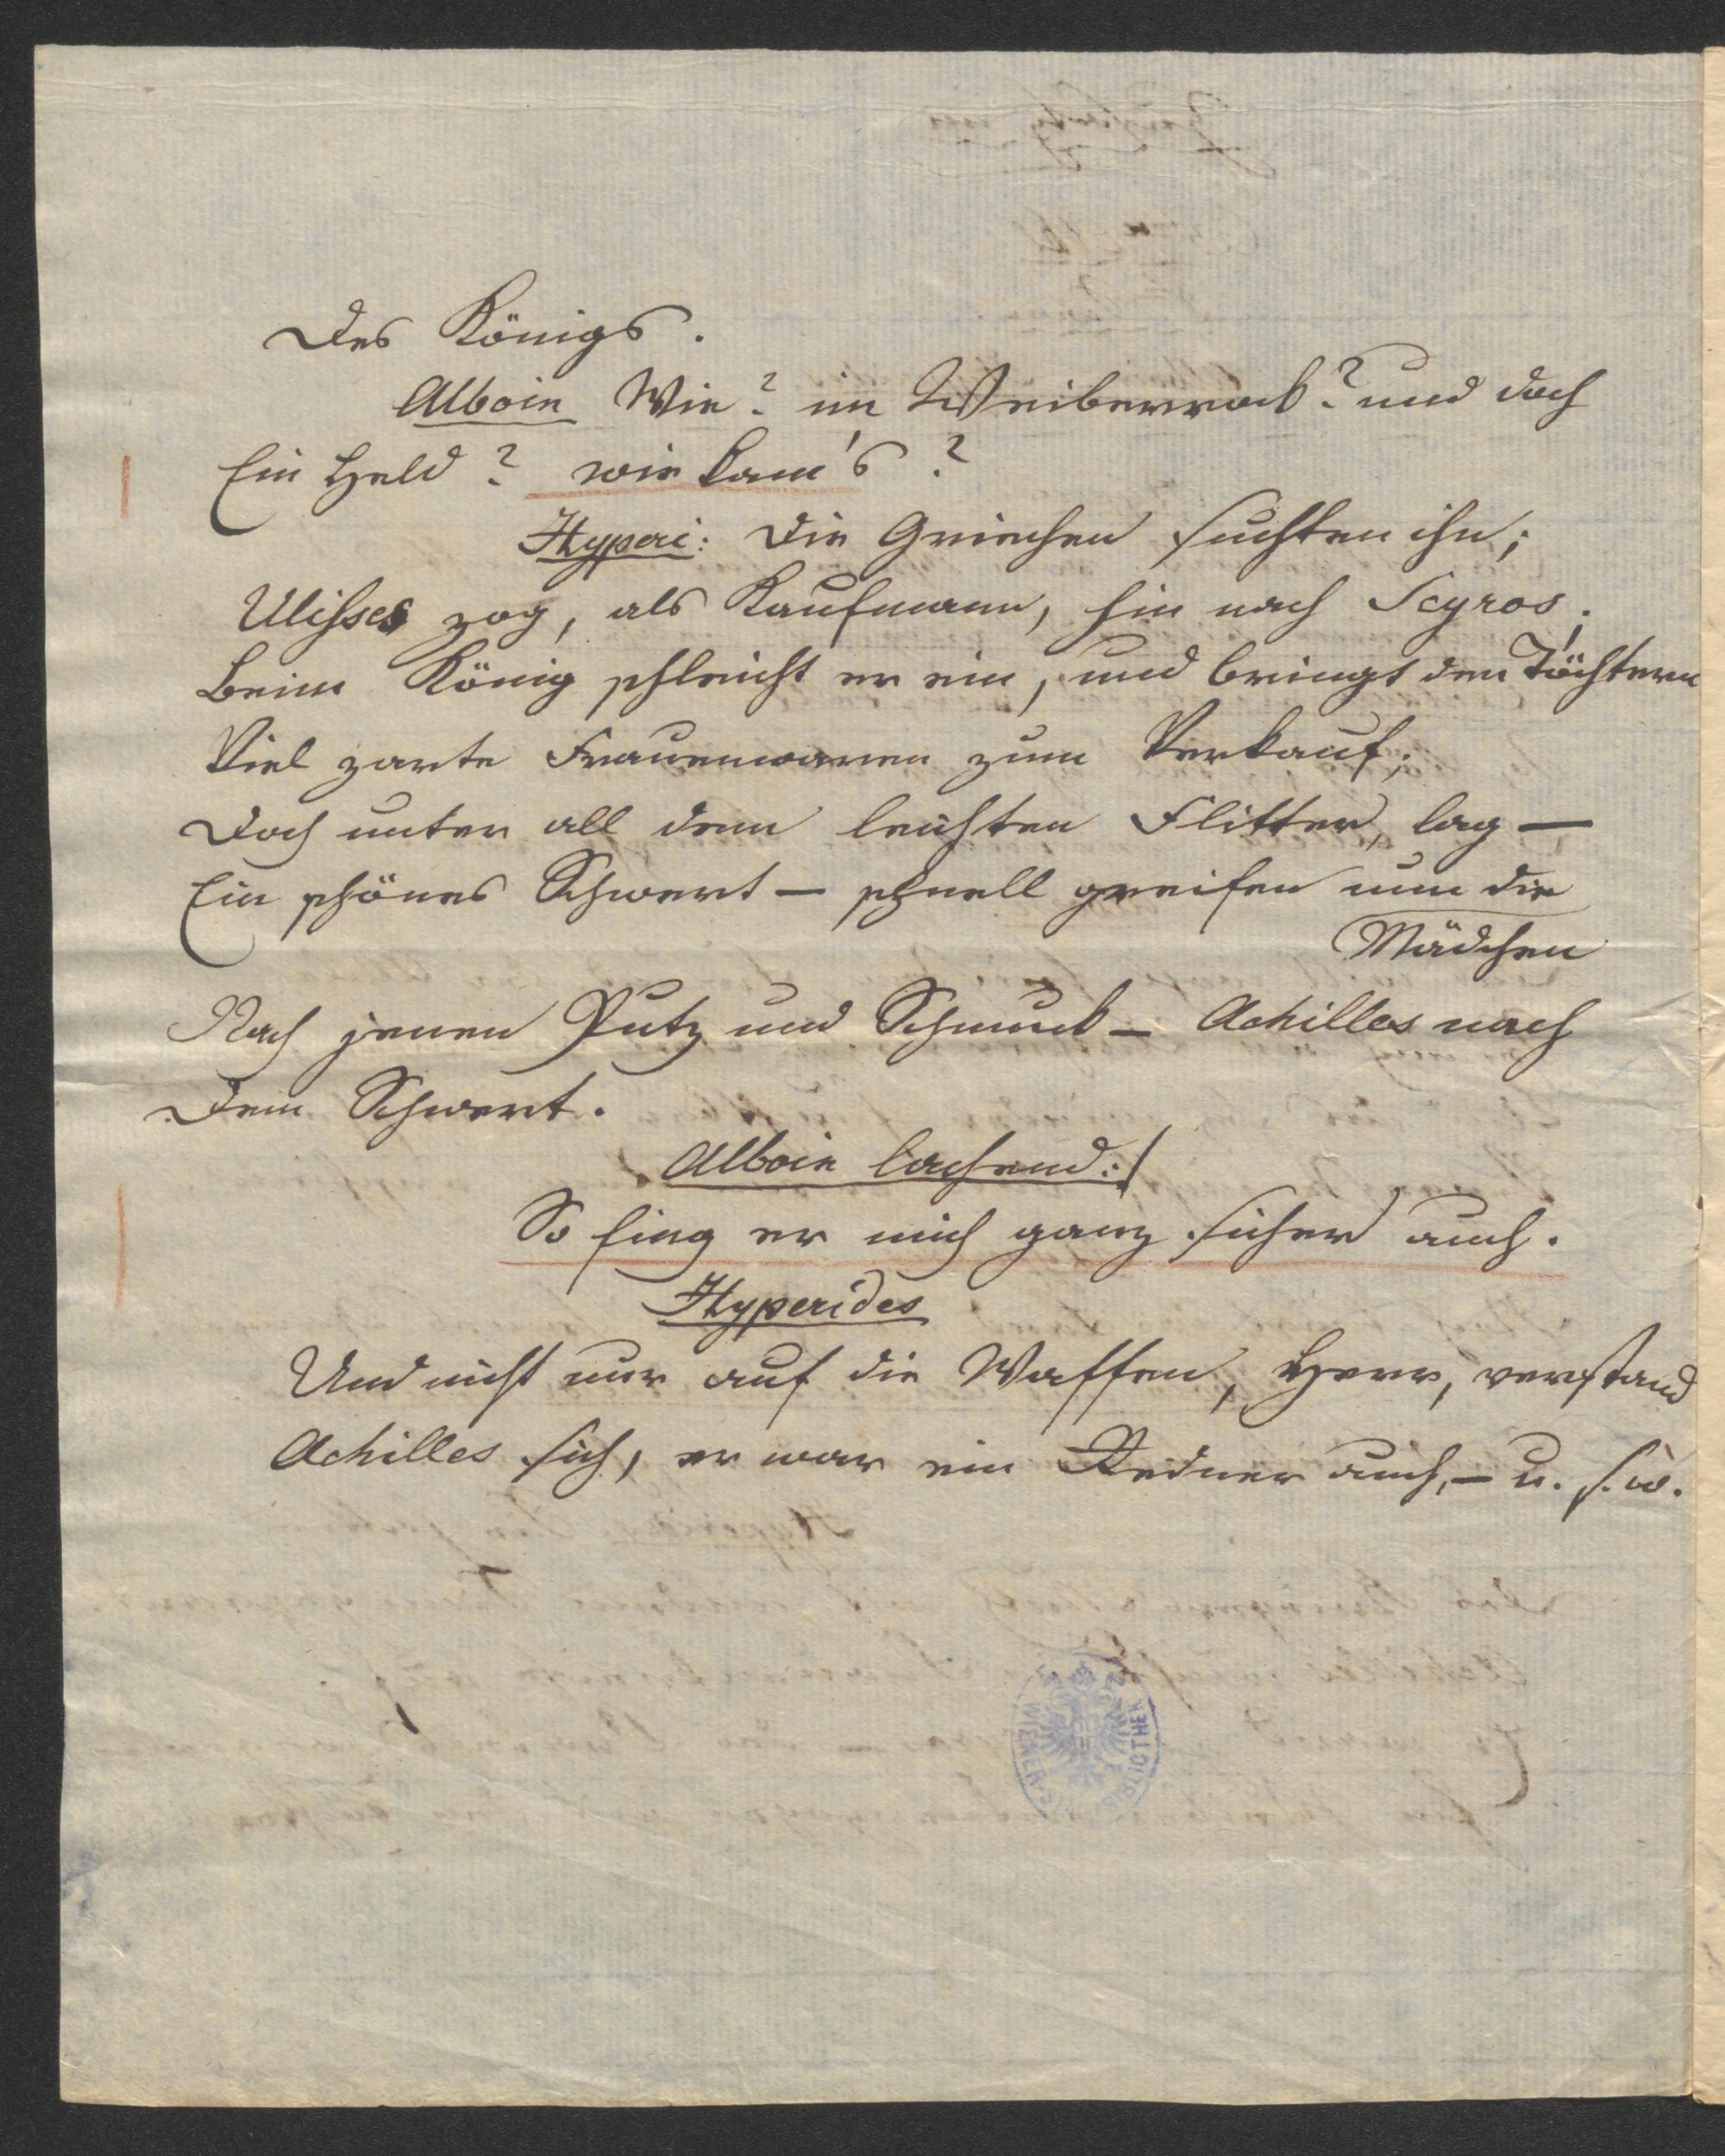 Des Königs.
Alboin Wie? im Weiberrock? und doch
Ein Held? wie kam's?
Hyperi: Die Griechen suchten ihn;
Ulisses zog, als Kaufmann, hin nach Scyros;
Beim König schleicht er ein, und bringt den Töchtern
Viel zarte Frauenwaren zum Verkauf;
Doch unter all dem leichten Flitter, lag —
Ein schönes Schwert — schnell greifen nun die
Mädchen
Nach jenen Putz und Schmuck — Achilles nach
Dem Schwert.
Alboin lachend:/
So fing er mich ganz sicher auch.
Hyperides
Und nicht nur auf die Waffen, Herr, verstand
Achilles sich, er war ein Redner auch, — u. s. w.
WIENER
BIBLIOTHEK